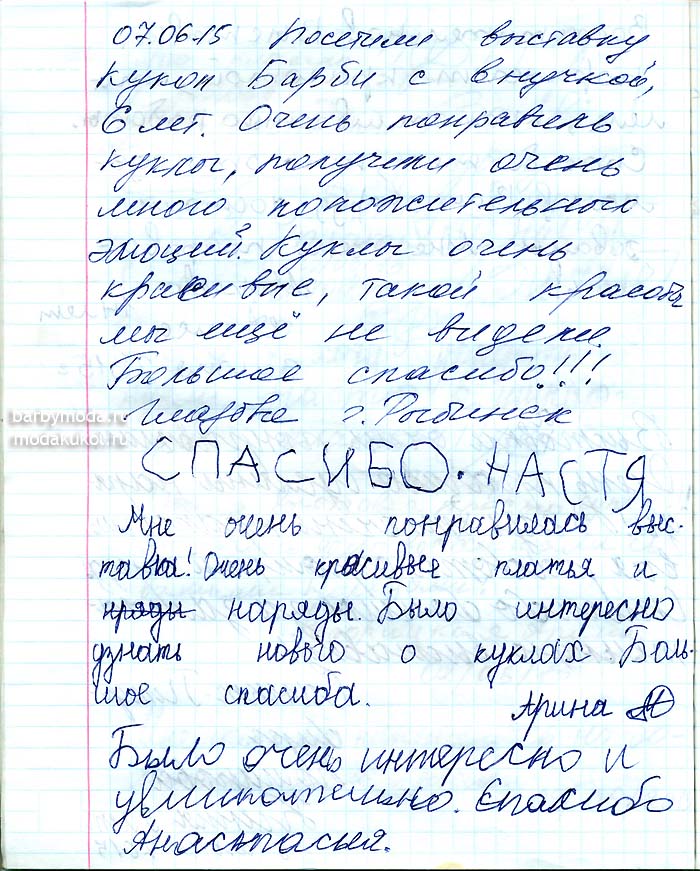 07.06.15 Посетили выставку
кукол Барби с внучкой,
6 лет. Очень понравились
куклы, получили очень
много положительных
эмоций. Куклы очень
красивые, такой красоты
мы ещё не видели.
Большое спасибо!!!
г. Рыбинск
barbymoda.ru
modakukol.ru
СПАСИБО. НАСТЯ
Мне очень понравилась выс-
тавка! Очень красивые платья и
няряды наряды. Было интересно
узнать нового о куклах. Боль-
шое спасиба.
Арина
Было очень интересно и
увликательно. Спасибо
Анастасия.